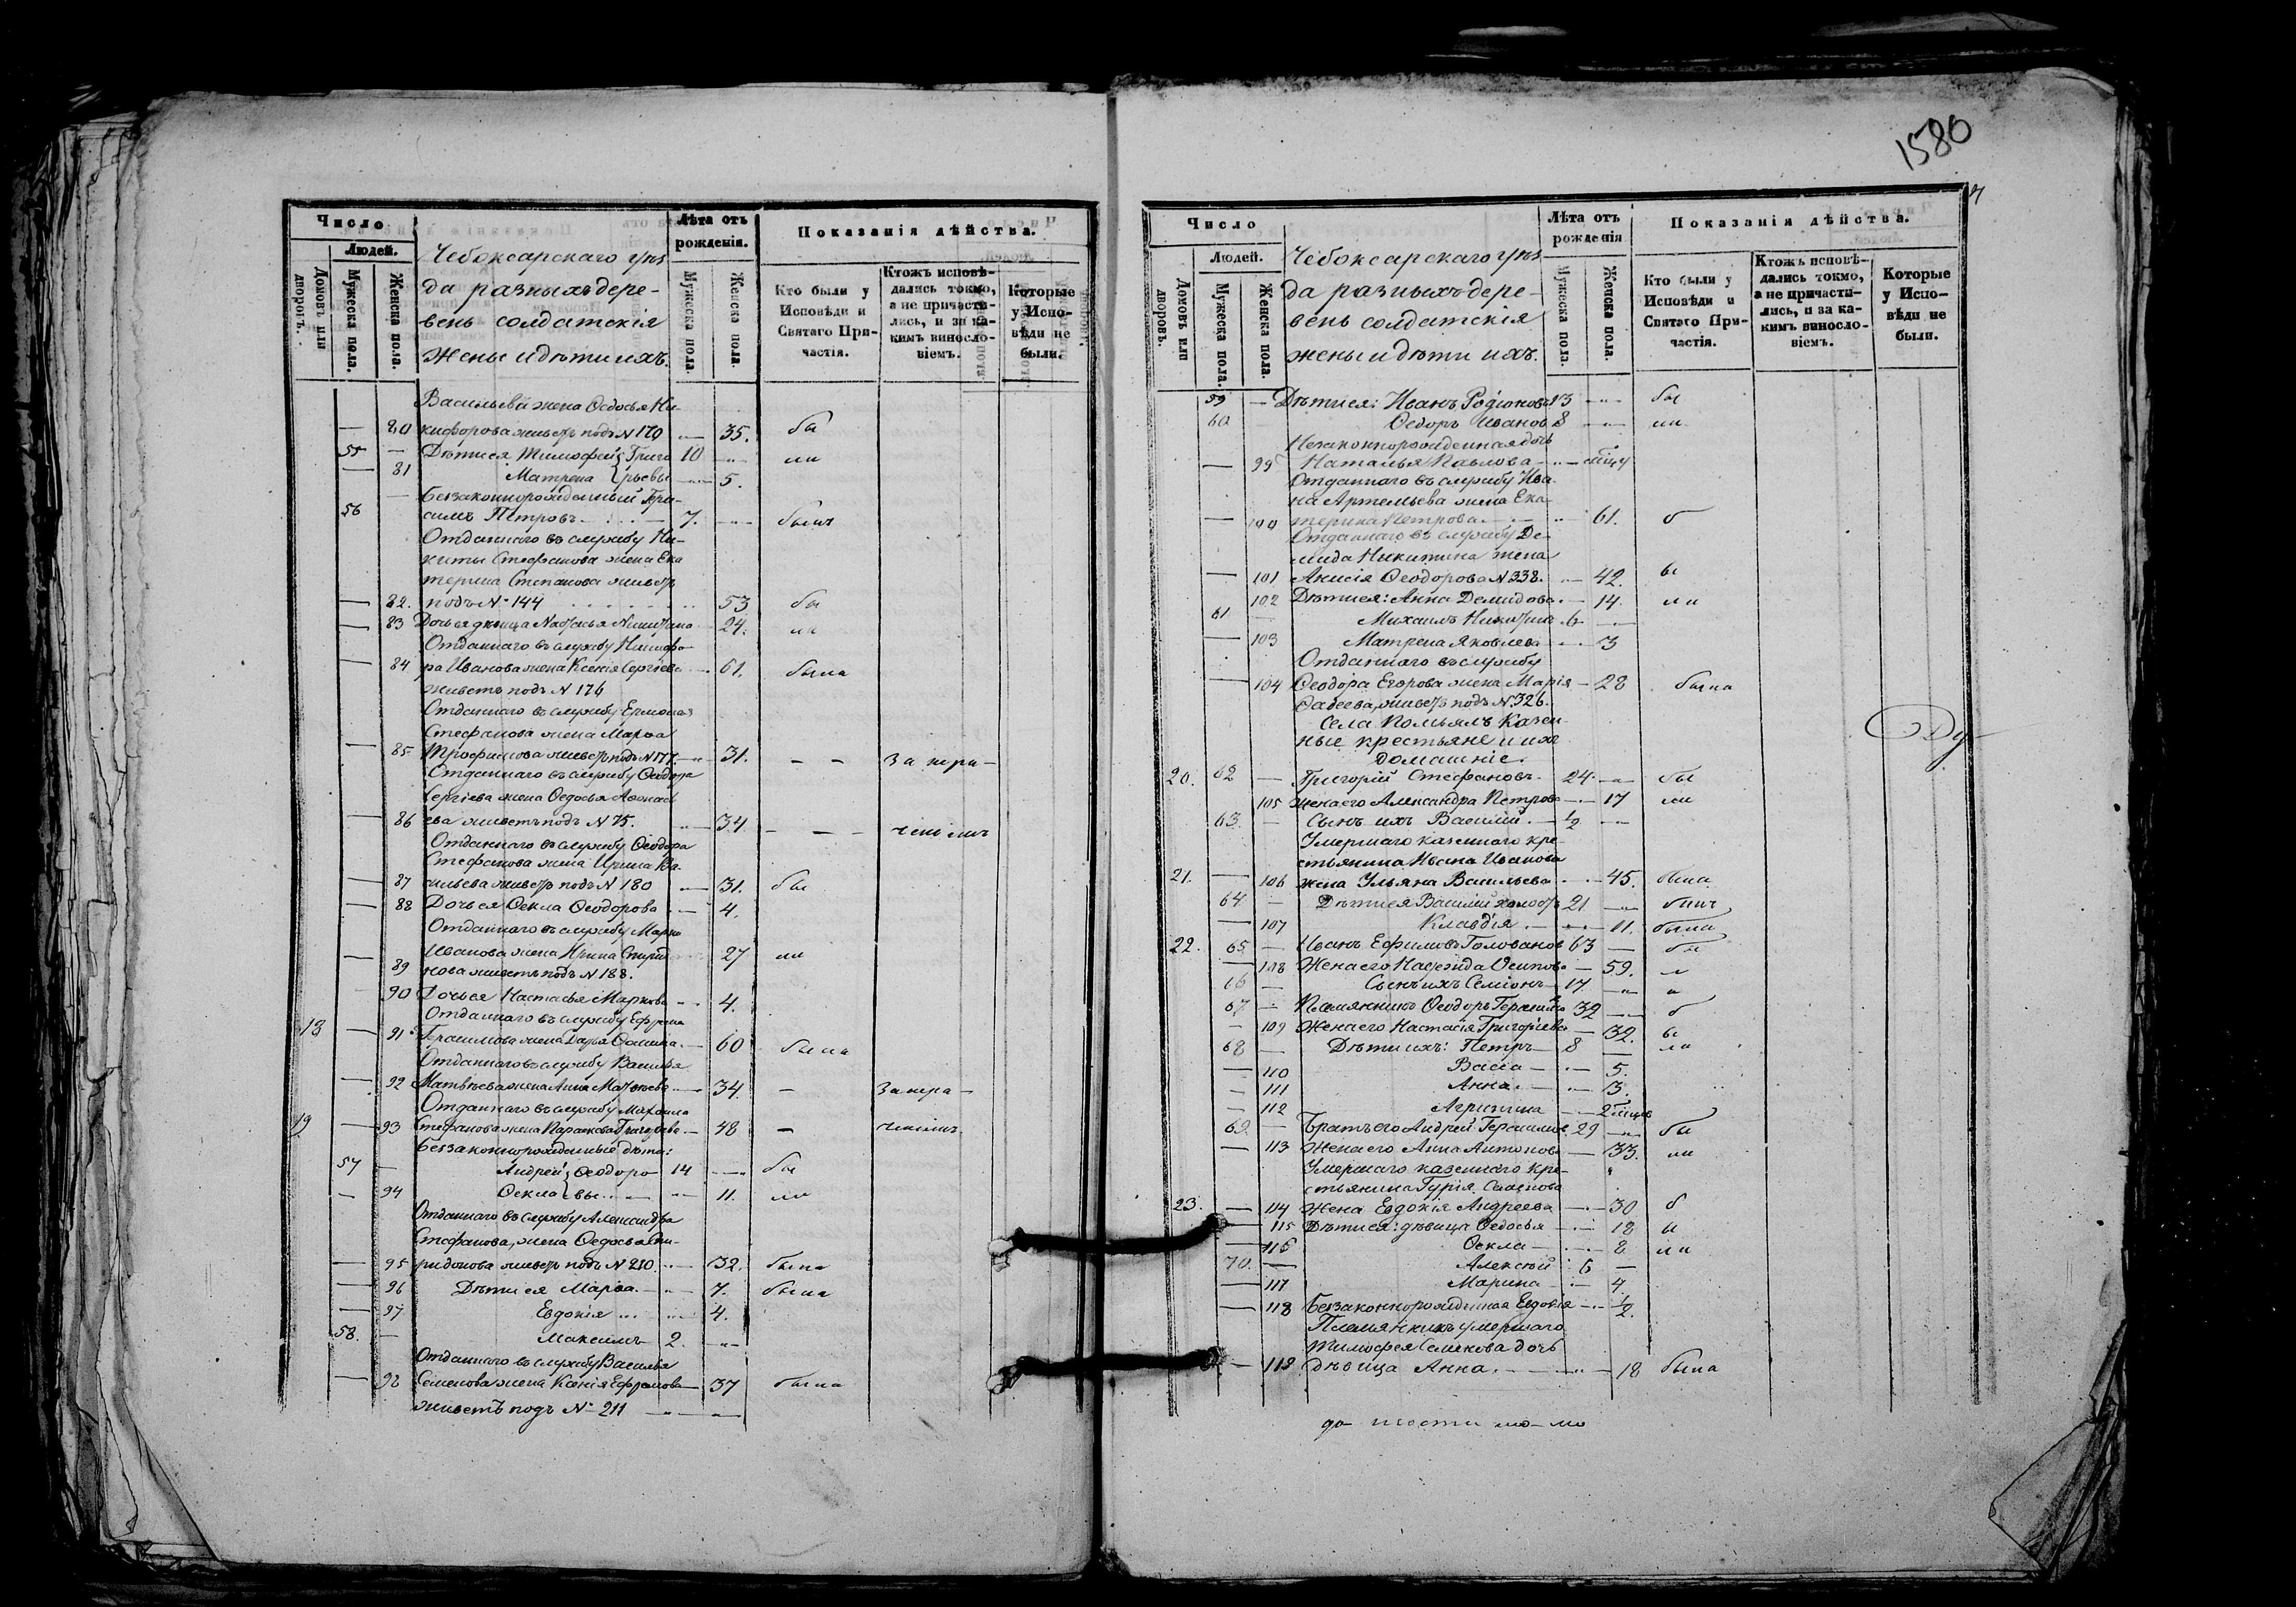 1580
Число
Людей.
Домовъ или дворовъ.
Мужеска пола.
Женска пола.
Чебоксарскаго уѣз
да разныхъ дере-
вень солдатскія
жены и дѣти ихъ.
Лѣта отъ рожденія.
Мужеска пола.
Женска пола.
Показанія дѣйства.
Кто были у Исповѣди и Святаго Причастія.
Ктожъ исповѣдались токмо, а не причастились, и за какимъ винословіемъ.
Которые у Исповѣди не были.
Васильева жена Ѳедосья Ни-
80 кифорова живетъ подъ N 170 35. бы
55 Дѣти ея Тимофей Григо 10 ли
81 Матрена рьевы 5.
Беззаконнорожденный Гера-
56 симъ Петровъ 7. былъ
Отданнаго въ службу Ни-
киты Стефанова жена Ека
терина Степанова живетъ
82. подъ N 144 53 бы
83 Дочь ея дѣвица Наталья Никитина 24. ли
Отданнаго въ службу Никифо-
84 ра Иванова жена Ксенія Сергіева 61. была
живетъ подъ N 176
Отданнаго въ службу Ермолая
Стефанова жена Марѳа
85 Трофимова живетъ подъ N 177. 31. За нера-
Отданнаго въ службу Ѳеодора
Сергіева жена Ѳедосья Аѳонась
86 ева живетъ подъ N 75. 34. чѣніемъ
Отданнаго въ службу Ѳеодора
Стефанова жена Ирина Ва-
87 сильева живетъ подъ N 180 31. бы
88 Дочь ея Ѳекла Ѳеодорова 4.
Отданнаго въ службу Марка
Иванова жена Ирина Спирид 27 ли
89 нова живетъ подъ N 188.
90 Дочь ея Настасья Маркова 4.
Отданнаго въ службу Ефрема
18 91 Герасимова жена Дарья 60 была
Отданнаго въ службу Василья
92 Матвѣева жена Анна Матвѣева 34. За нера-
Отданнаго въ службу Михаила
19 93 Стефанова жена Параскева Григорьева 48 чѣніемъ
Беззаконнорожденные дѣти:
57 Андрей Ѳеодоро 14 бы
94 Ѳекла вы 11. ли
Отданнаго въ службу Александра
Стефанова, жена Ѳедосья Спи-
95 ридонова живетъ подъ N 210. 32. была
96 Дѣти ея Марѳа 7. была
97 Евдокія 4.
58. Максимъ 2.
Отданнаго въ службу Василья
98 Семенова жена Ксенія Ефремова 37 была
живетъ подъ N 211
Число
Людей.
Домовъ или дворовъ.
Мужеска пола.
Женска пола.
Чебоксарскаго уѣз
да разныхъ дере-
вень солдатскія
жены и дѣти ихъ.
Лѣта отъ рожденія
Мужеска пола.
Женска пола.
Показанія дѣйства.
Кто были у Исповѣди и Святаго Причастія.
Ктожъ исповѣдались токмо, а не причастились, и за какимъ винословіемъ.
Которые у Исповѣди не были.
59 Дѣти ея: Иванъ Родіоновъ 13 бы
60 Ѳедоръ Ивановъ 8 ли
Незаконнорожденная дочь
99 Наталья Павлова
Отданнаго въ службу Ива-
на Артемьева жена Ека-
100 терина Петрова 61. б
Отданнаго въ службу Де-
мида Никитина жена
101 Анисія Ѳеодорова N 338. 42. ы
102 Дѣти ея: Анна Демидова 14. ли
61 Михаилъ Никитинъ 6
103 Матрена Яковлева 3
Отданнаго въ службу
104 Ѳеодора Егорова жена Марія 28 была
Ѳадеева, живетъ подъ N 326.
Села Помьялъ казен-
ные крестьяне и ихъ
домашніе.
20. 62 Григорій Стефановъ 24. бы
105 Жена его Александра Петрова 17 ли
63. Сынъ ихъ Василий 1/2
Умершаго казеннаго кре-
стьянина Ивана Иванова
21. 106 жена Ульяна Васильева 45. была
64 Дѣти ея Василий холостъ 21 былъ
107 Клавдія 11. была
22. 65 Иванъ Ефимовъ Головановъ 63 бы
108 Жена его Надежда Осипова 59. л
66 Сынъ ихъ Семіонъ 17 и
67 Племянникъ Ѳеодоръ Герасимовъ 32 б
109 Жена его Настасія Григоріева 32. ы
68 Дѣти ихъ: Петръ 8 ли
110 Васса 5.
111 Анна 3.
112 Агрипина
69. Братъ его Андрей Герасимовъ 29 бы
113 Жена его Анна Антонова 33. ли
Умершаго казеннаго кре-
стьянина Гурія Семенова
23. 114 Жена Евдокія Андреева 30 б
115 Дѣти ея: дѣвица Ѳедосья 18 ы
116 Ѳекла 8 ли
70. Алексѣй 6
117 Марина 4.
118 Беззаконнорожденная Евдокія 1/2.
Племянникъ умершаго
Тимофея Семенова дочь
119 дѣвица Анна 18 была